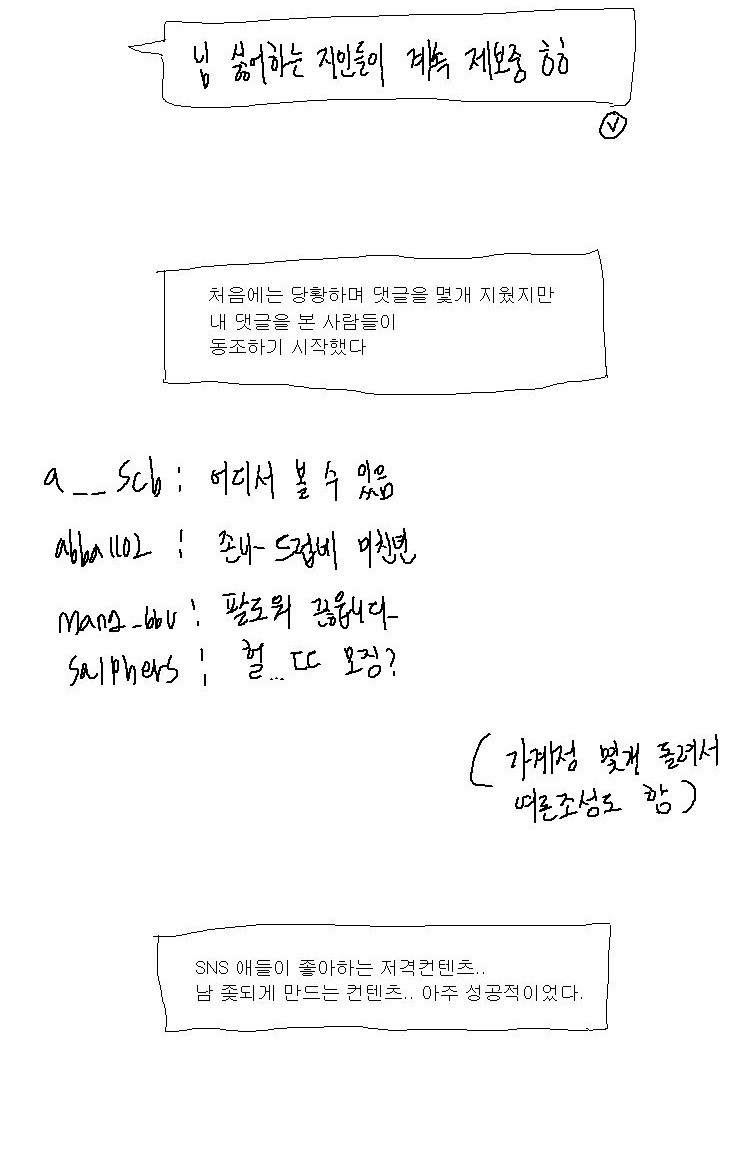 님 싫어하는 지인들이 계속 제보중 ㅎㅎ
처음에는 당황하며 댓글을 몇개 지웠지만
내 댓글을 본 사람들이
동조하기 시작했다
a__scb : 어디서 볼 수 있음
abba1102 : 존나 드럽네 미친년
mang_bbu : 팔로워 끊읍니다
salphers : 헐... ㄷㄷ 모징?
(가계정 몇개 돌려서
여론조성도 함)
SNS 애들이 좋아하는 저격컨텐츠..
남 좆되게 만드는 컨텐츠.. 아주 성공적이었다.